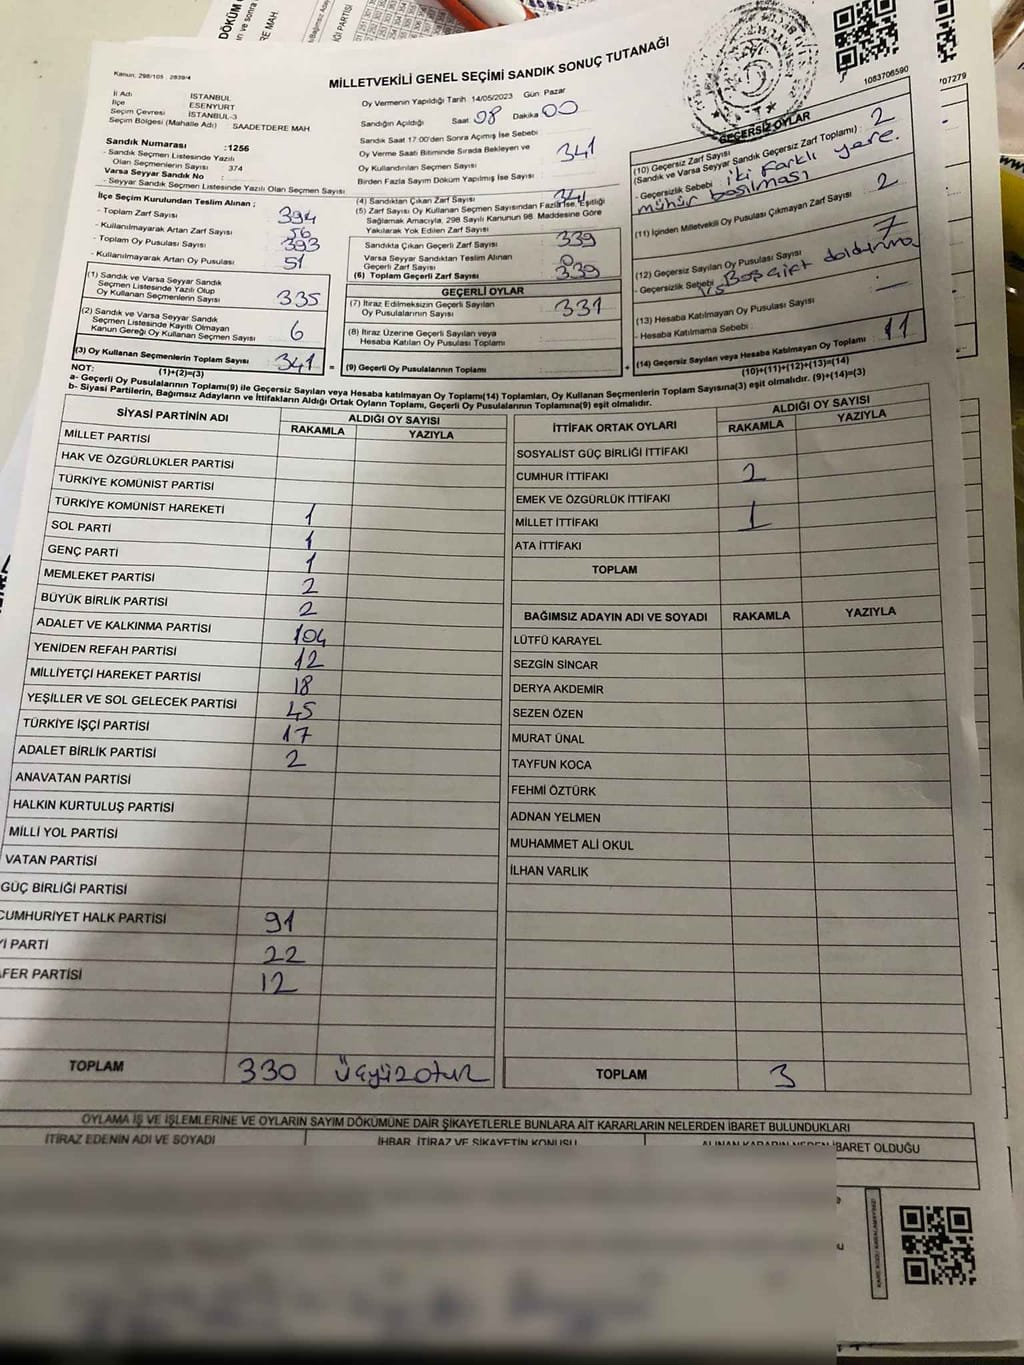 Kanun, 298/105 : 2839/4
MİLLETVEKİLİ GENEL SEÇİMİ SANDIK SONUÇ TUTANAĞI
1083706590
07279
İl Adı İSTANBUL
İlçe ESENYURT
Seçim Çevresi İSTANBUL-3
Seçim Bölgesi (Mahalle Adı) SAADETDERE MAH
Sandık Numarası :1256
- Sandık Seçmen Listesinde Yazılı
Olan Seçmenlerin Sayısı 374
Varsa Seyyar Sandık No :
- Seyyar Sandık Seçmen Listesinde Yazılı Olan Seçmen Sayısı
İlçe Seçim Kurulundan Teslim Alınan ;
- Toplam Zarf Sayısı : 394
- Kullanılmayarak Artan Zarf Sayısı : 56
- Toplam Oy Pusulası Sayısı : 393
- Kullanılmayarak Artan Oy Pusulası : 51
(1) Sandık ve Varsa Seyyar Sandık
Seçmen Listesinde Yazılı Olup
Oy Kullanan Seçmenlerin Sayısı : 335
(2) Sandık ve Varsa Seyyar Sandık
Seçmen Listesinde Kayıtlı Olmayan
Kanun Gereği Oy Kullanan Seçmen Sayısı : 6
(3) Oy Kullanan Seçmenlerin Toplam Sayısı : 341
(1)+(2)=(3)
Oy Vermenin Yapıldığı Tarih 14/05/2023 Gün Pazar
Sandığın Açıldığı Saat 08 Dakika 00
Sandık Saat 17:00'den Sonra Açmış İse Sebebi
Oy Verme Saati Bitiminde Sırada Bekleyen ve
Oy Kullandırılan Seçmen Sayısı : 341
Birden Fazla Sayım Döküm Yapılmış İse Sayısı :
(4) Sandıktan Çıkan Zarf Sayısı : 341
(5) Zarf Sayısı Oy Kullanan Seçmen Sayısından Fazla İse, Eşitliği
Sağlamak Amacıyla, 298 Sayılı Kanunun 98. Maddesine Göre
Yakılarak Yok Edilen Zarf Sayısı
Sandıkta Çıkan Geçerli Zarf Sayısı : 339
Varsa Seyyar Sandıktan Teslim Alınan
Geçerli Zarf Sayısı : 0
(6) Toplam Geçerli Zarf Sayısı : 339
GEÇERLİ OYLAR
(7) İtiraz Edilmeksizin Geçerli Sayılan
Oy Pusulalarının Sayısı : 331
(8) İtiraz Üzerine Geçerli Sayılan veya
Hesaba Katılan Oy Pusulası Toplamı :
= (9) Geçerli Oy Pusulalarının Toplamı :
+
GEÇERSİZ OYLAR
(10) Geçersiz Zarf Sayısı
(Sandık ve Varsa Seyyar Sandık Geçersiz Zarf Toplamı) : 2
- Geçersizlik Sebebi : iki farklı yere.
mühür basılması
(11) İçinden Milletvekili Oy Pusulası Çıkmayan Zarf Sayısı 2
(12) Geçersiz Sayılan Oy Pusulası Sayısı : 7
- Geçersizlik Sebebi Boş çift doldurma
(13) Hesaba Katılmayan Oy Pusulası Sayısı : —
- Hesaba Katılmama Sebebi :
(14) Geçersiz Sayılan veya Hesaba Katılmayan Oy Toplamı : 11
(10)+(11)+(12)+(13)=(14)
NOT:
a- Geçerli Oy Pusulalarının Toplamı(9) ile Geçersiz Sayılan veya Hesaba katılmayan Oy Toplamı(14) Toplamları, Oy Kullanan Seçmenlerin Toplam Sayısına(3) eşit olmalıdır. (9)+(14)=(3)
b- Siyasi Partilerin, Bağımsız Adayların ve İttifakların Aldığı Ortak Oyların Toplamı, Geçerli Oy Pusulalarının Toplamına(9) eşit olmalıdır.
SİYASİ PARTİNİN ADI ALDIĞI OY SAYISI
RAKAMLA YAZIYLA
MİLLET PARTİSİ
HAK VE ÖZGÜRLÜKLER PARTİSİ
TÜRKİYE KOMÜNİST PARTİSİ
TÜRKİYE KOMÜNİST HAREKETİ 1
SOL PARTİ 1
GENÇ PARTİ 1
MEMLEKET PARTİSİ 2
BÜYÜK BİRLİK PARTİSİ 2
ADALET VE KALKINMA PARTİSİ 104
YENİDEN REFAH PARTİSİ 12
MİLLİYETÇİ HAREKET PARTİSİ 18
YEŞİLLER VE SOL GELECEK PARTİSİ 45
TÜRKİYE İŞÇİ PARTİSİ 17
ADALET BİRLİK PARTİSİ 2
ANAVATAN PARTİSİ
HALKIN KURTULUŞ PARTİSİ
MİLLİ YOL PARTİSİ
VATAN PARTİSİ
GÜÇ BİRLİĞİ PARTİSİ
CUMHURİYET HALK PARTİSİ 91
Yİ PARTİ 22
AFER PARTİSİ 12
TOPLAM 330 üçyüzotuz
İTTİFAK ORTAK OYLARI ALDIĞI OY SAYISI
RAKAMLA YAZIYLA
SOSYALİST GÜÇ BİRLİĞİ İTTİFAKI
CUMHUR İTTİFAKI 2
EMEK VE ÖZGÜRLÜK İTTİFAKI
MİLLET İTTİFAKI 1
ATA İTTİFAKI
TOPLAM
BAĞIMSIZ ADAYIN ADI VE SOYADI RAKAMLA YAZIYLA
LÜTFÜ KARAYEL
SEZGİN SİNCAR
DERYA AKDEMİR
SEZEN ÖZEN
MURAT ÜNAL
TAYFUN KOCA
FEHMİ ÖZTÜRK
ADNAN YELMEN
MUHAMMET ALİ OKUL
İLHAN VARLIK
TOPLAM 3
OYLAMA İŞ VE İŞLEMLERİNE VE OYLARIN SAYIM DÖKÜMÜNE DAİR ŞİKAYETLERLE BUNLARA AİT KARARLARIN NELERDEN İBARET BULUNDUKLARI
İTİRAZ EDENİN ADI VE SOYADI İHBAR, İTİRAZ VE ŞİKAYETİN KONUSU ALINAN KARARIN NEDEN İBARET OLDUĞU